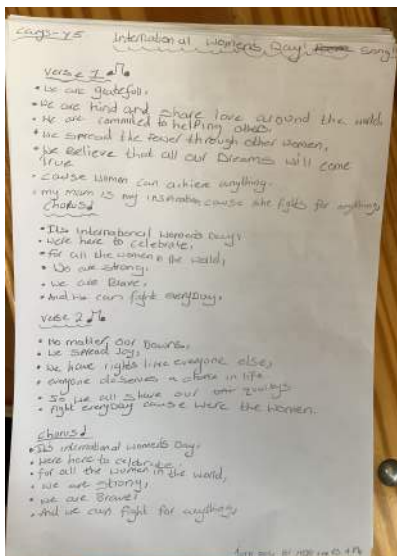 Carys - Y5
International Womens Day! song!
verse 1
• We are gratefull,
• We are kind and share love around the world,
• We are commited to helping others,
• We spread the Power through other women,
• We Believe that all our Dreams will come
true
• cause women can achieve anything.
• my mom is my inspiration cause she fights for anything,
Chorus
• Its International womens Day,
• Were here to celebrate,
• for all the women in the world,
• We are strong,
• we are Brave,
• And we can fight everyday,
verse 2
• No matter our Downs,
• we spread Joy,
• We have rights like everyone else,
• everyone deserves a chance in life
• So we all share our
• Fight everyDay cause were the women.
chorus
• Its international womens Day,
• Were here to celebrate,
• for all the women in the world,
• we are strong,
• we are Brave!
• And we can fight for anything,